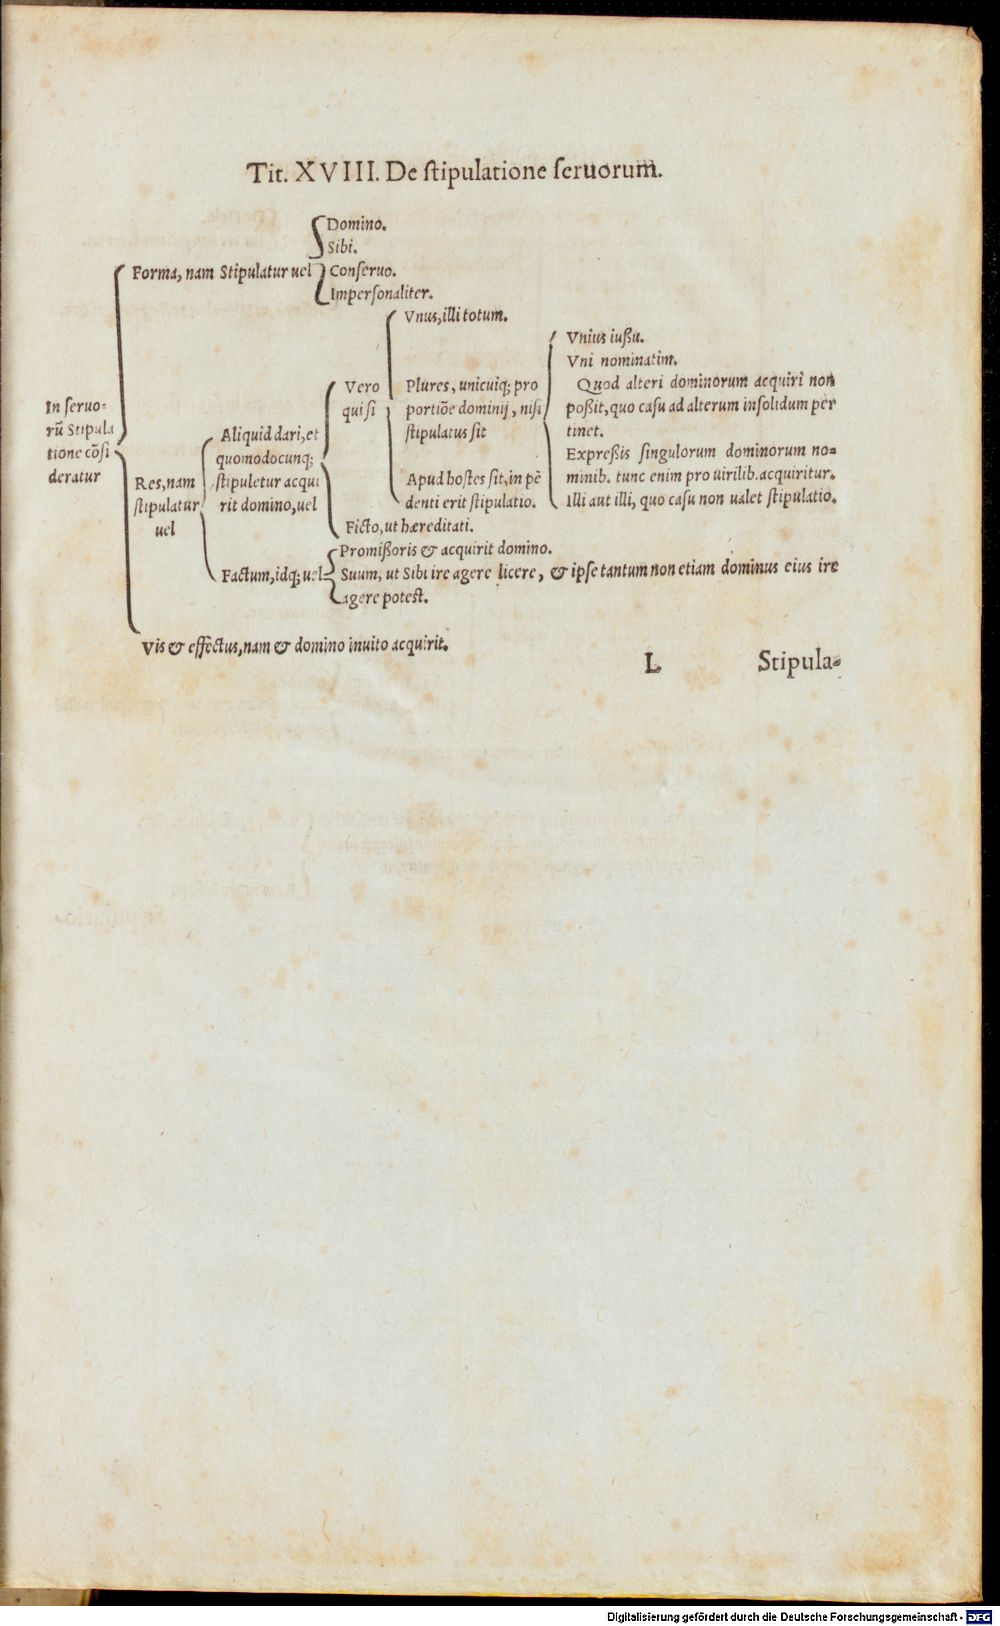 Tit. XVIII. De ſtipulatione ſeruorum.
Domino.
Sibi.
Forma, nam Stipulatur uel
Conſeruo.
Imperſonaliter.
In ſeruo-
rũ Stipula
tione cõſi
deratur
Res, nam
ſtipulatur
uel
Aliquid dari, et
quomodocunq;
ſtipuletur acqui
rit domino, uel
Vero
qui ſi
Vnus, illi totum.
Plures, unicuiq; pro
portiõe dominij, niſi
ſtipulatus ſit
Vnius iußu.
Vni nominatim.
Quod alteri dominorum acquiri non
poßit, quo caſu ad alterum inſolidum per
tinet.
Expreßis ſingulorum dominorum no-
minib. tunc enim pro uirilib. acquiritur.
Illi aut illi, quo caſu non ualet ſtipulatio.
Apud hoſtes ſit, in pẽ
denti erit ſtipulatio.
Ficto, ut hæreditati.
Factum, idq; uel
Promißoris & acquirit domino.
Suum, ut Sibi ire agere licere, & ipſe tantum non etiam dominus eius ire
agere poteſt.
Vis & effectus, nam & domino inuito acquirit.
L
Stipula-
Digitalisierung gefördert durch die Deutsche Forschungsgemeinschaft - DFG